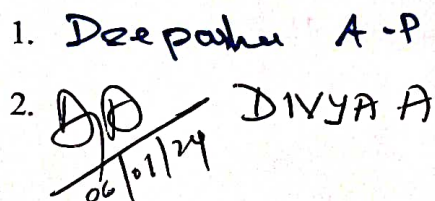 1. Deepasha A-P
2. DIVYA A
06/01/24